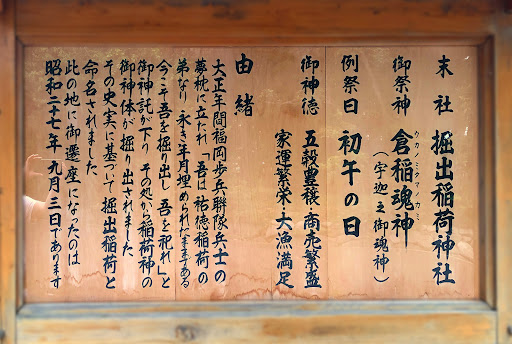 末社 掘出稲荷神社
ウカノミタマノカミ
御祭神 倉稲魂神
(宇迦之御魂神)
例祭日 初午の日
御神徳 五穀豊穣・商売繁盛
家運繁栄・大漁満足
由緒
大正年間福岡歩兵聯隊兵士の
夢枕に立たれ「吾は祐徳稲荷の
弟なり 永き年月埋められたままである
今こそ吾を掘り出し 吾を祀れ」と
御神託が下り その処から稲荷神の
御神体が掘り出されました
その史実に基づいて掘出稲荷と
命名されました
此の地に御遷座になったのは
昭和三十七年 九月三日であります